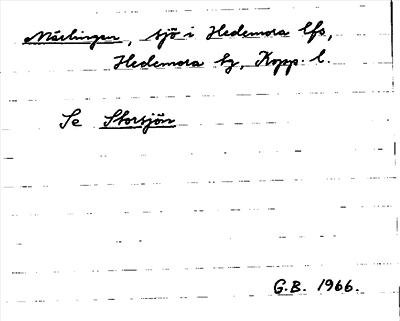 Märlingen, sjö i Hedemora lfs,
Hedemora hg, Kopp. l.
Se Storsjön
G.B. 1966.